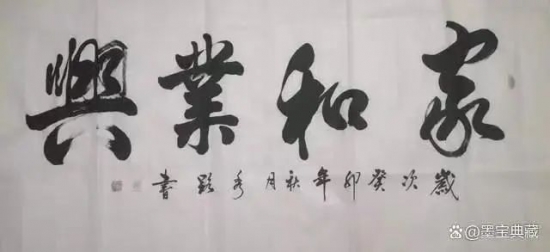 家和業興
歲次癸卯年秋月書
墨宝典藏